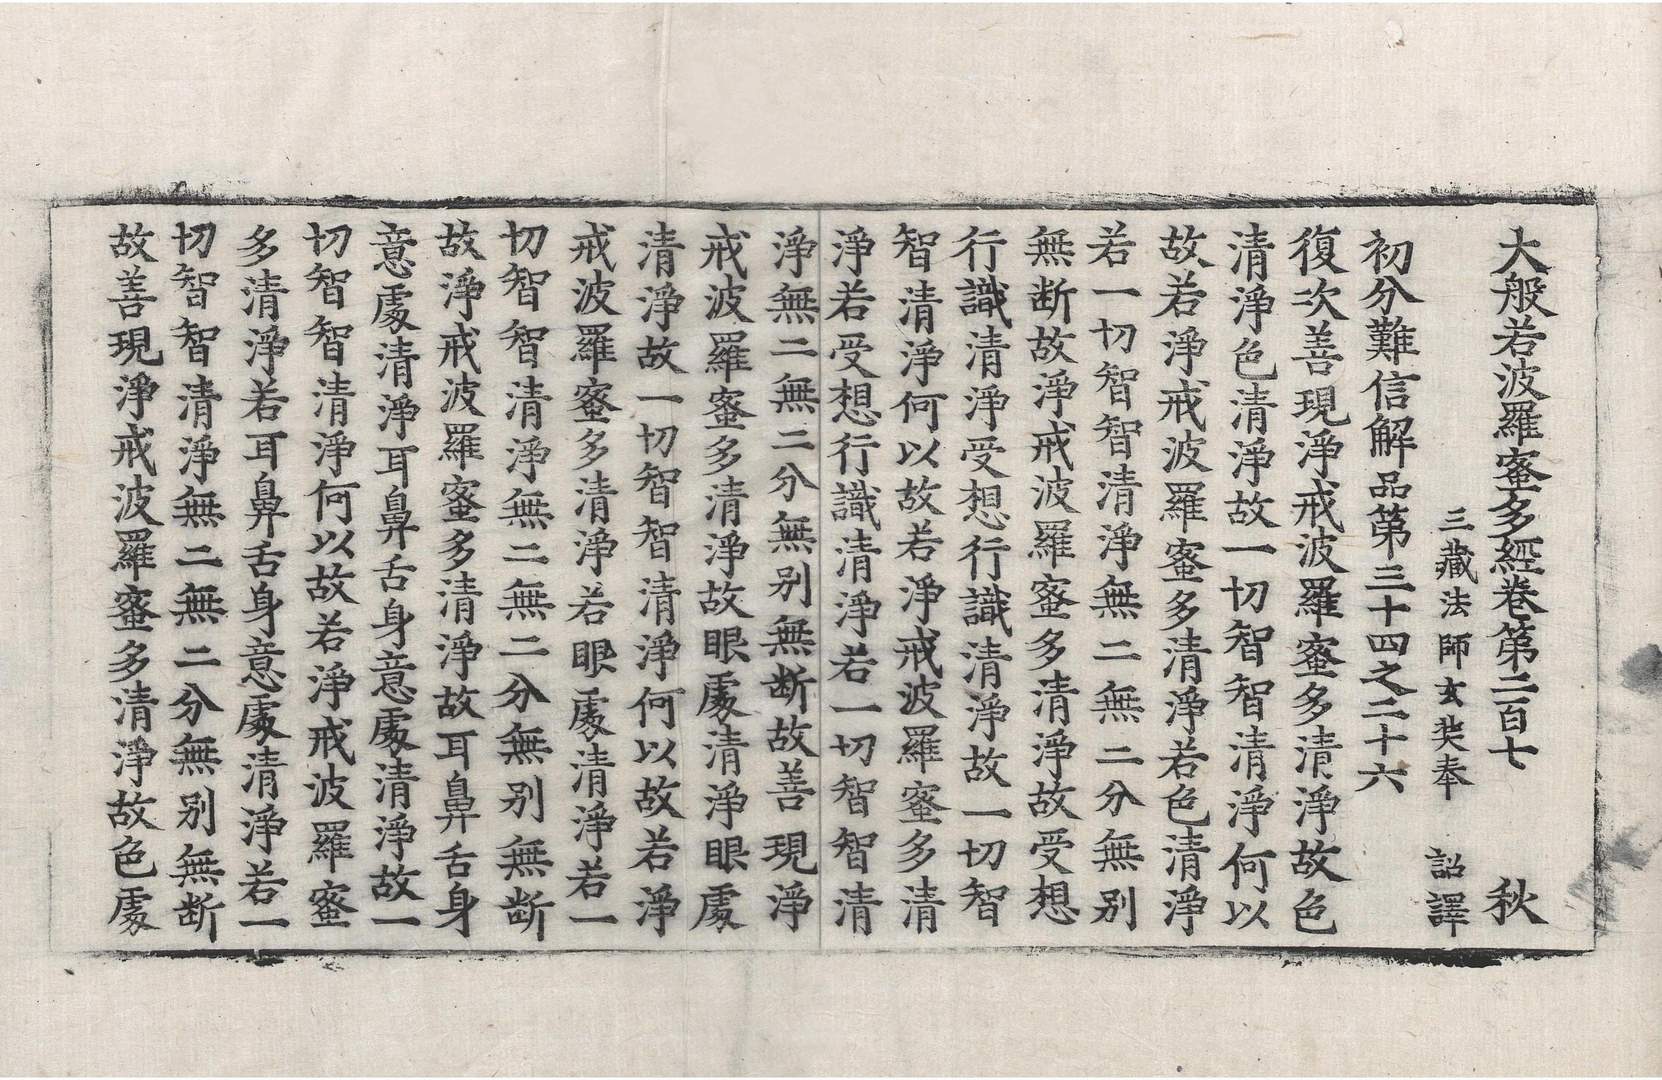 大般若波羅蜜多經卷第二百七　秋
三藏法師玄奘奉　詔譯
初分難信解品第三十四之二十六
復次善現淨戒波羅蜜多清淨故色
清淨色清淨故一切智智清淨何以
故若淨戒波羅蜜多清淨若色清淨
若一切智智清淨無二無二分無別
無断故淨戒波羅蜜多清淨故受想
行識清淨受想行識清淨故一切智
智清淨何以故若淨戒波羅蜜多清
淨若受想行識清淨若一切智智清
淨無二無二分無别無断故善現淨
戒波羅蜜多清淨故眼處清淨眼處
清淨故一切智智清淨何以故若淨
戒波羅蜜多清淨若眼處清淨若一
切智智清淨無二無二分無别無断
故淨戒波羅蜜多清淨故耳鼻舌身
意處清淨耳鼻舌身意處清淨故一
切智智清淨何以故若淨戒波羅蜜
多清淨若耳鼻舌身意處清淨若一
切智智清淨無二無二分無别無断
故善現淨戒波羅蜜多清淨故色處